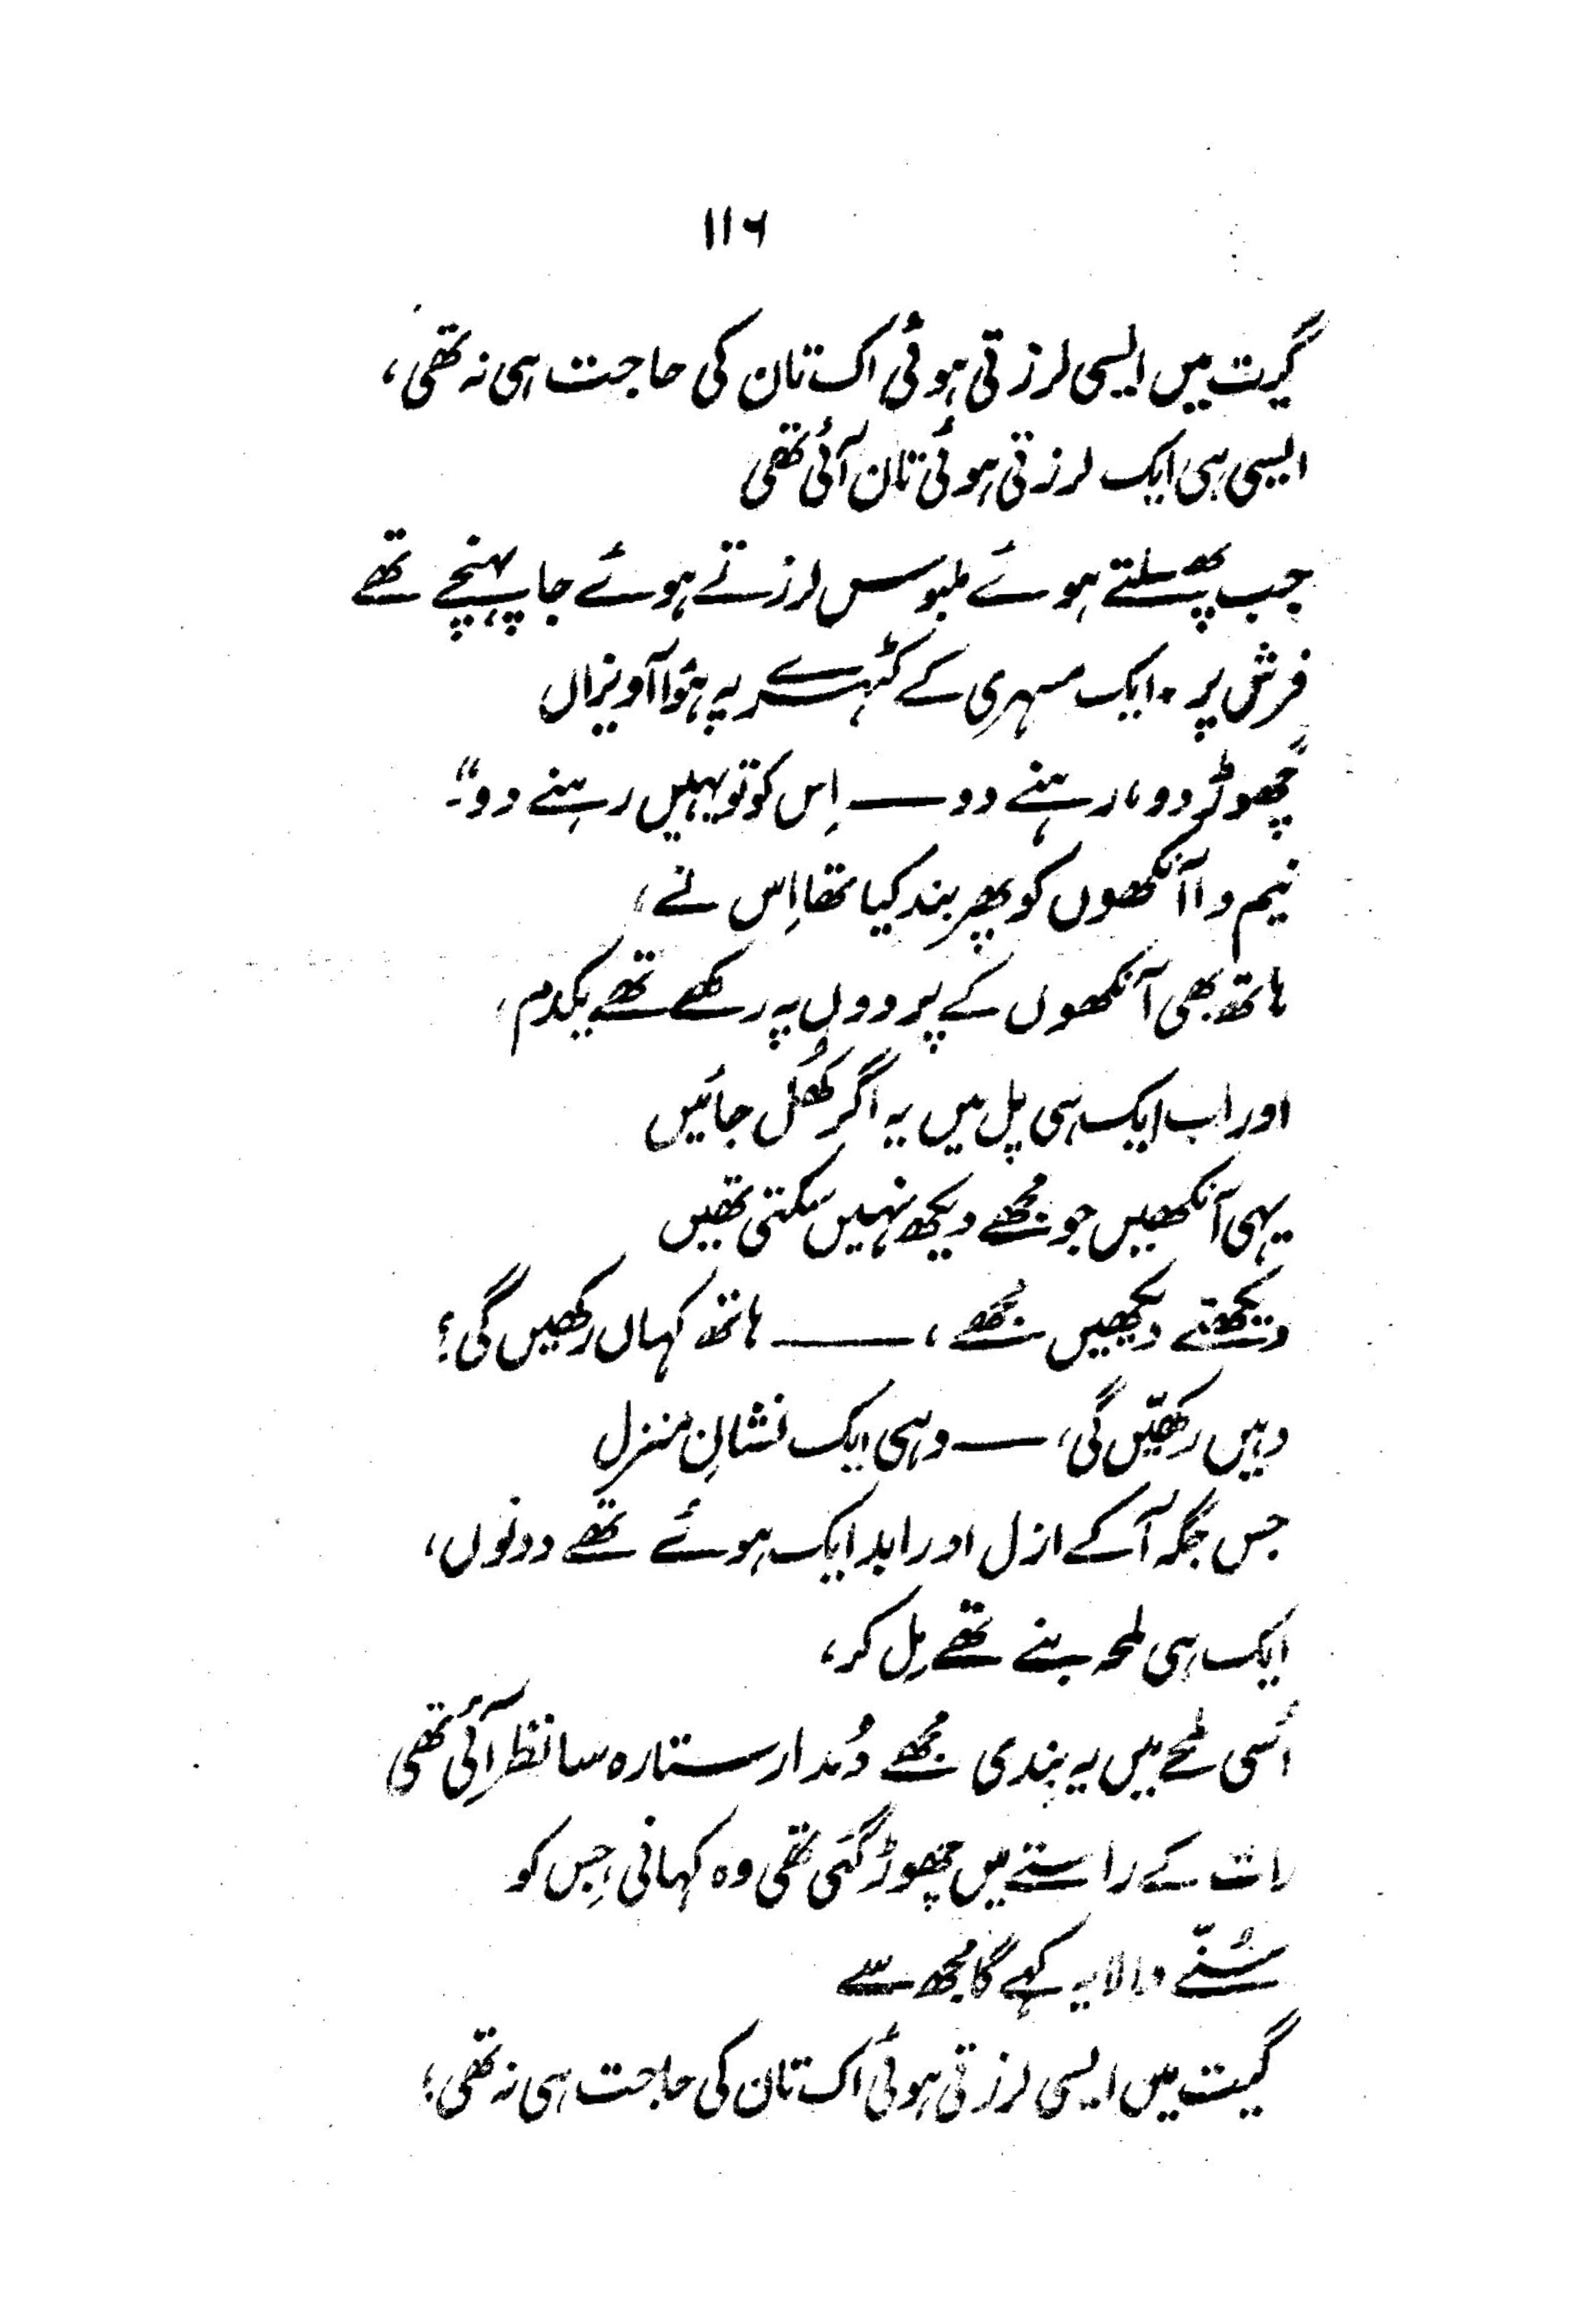 ۱۱۶
گیت میں ایسی لرزتی ہوئی اک تان کی حاجت ہی نہ تھی،
ایسی ہی ایک لرزتی ہوئی تان آئی تھی
جب پھسلتے ہوئے ملبوس لرزتے ہوئے جا پہنچے تھے
فرش پر۔ ایک مسہری کے کٹہرے پہ ہؤا آویزاں
"چھوڑ دو، رہنے دو ـــــ اِس کو تو یہیں رہنے دو"۔
نیم وا آنکھوں کو پھر بند کیا تھا اِس نے،
ہاتھ بھی آنکھوں کے پردوں پہ رکھے تھے یکدم،
اور اب ایک ہی پل میں یہ اگر کُھل جائیں
یہی آنکھیں جو مجھے دیکھ نہیں سکتی تھیں
دیکھتے دیکھیں مجھے، ـــــــــ ہاتھ کہاں رکھیں گی؟
وہیں رکھیں گی، ـــــ وہی ایک نشانِ منزل
جس جگہ آ کے ازل اور ابد ایک ہوئے تھے دونوں،
ایک ہی لمحہ بنے تھے مِل کر،
اُسی لمحے میں یہ بندی مجھے دُمدار ستارہ سا نظر آئی تھی
رات کے راستے میں چھوڑ گئی تھی وہ کہانی، جِس کو
سُننے والا یہ کہے گا مجھ سے
گیت میں ایسی لرزتی ہوئی اک تان کی حاجت ہی نہ تھی؛